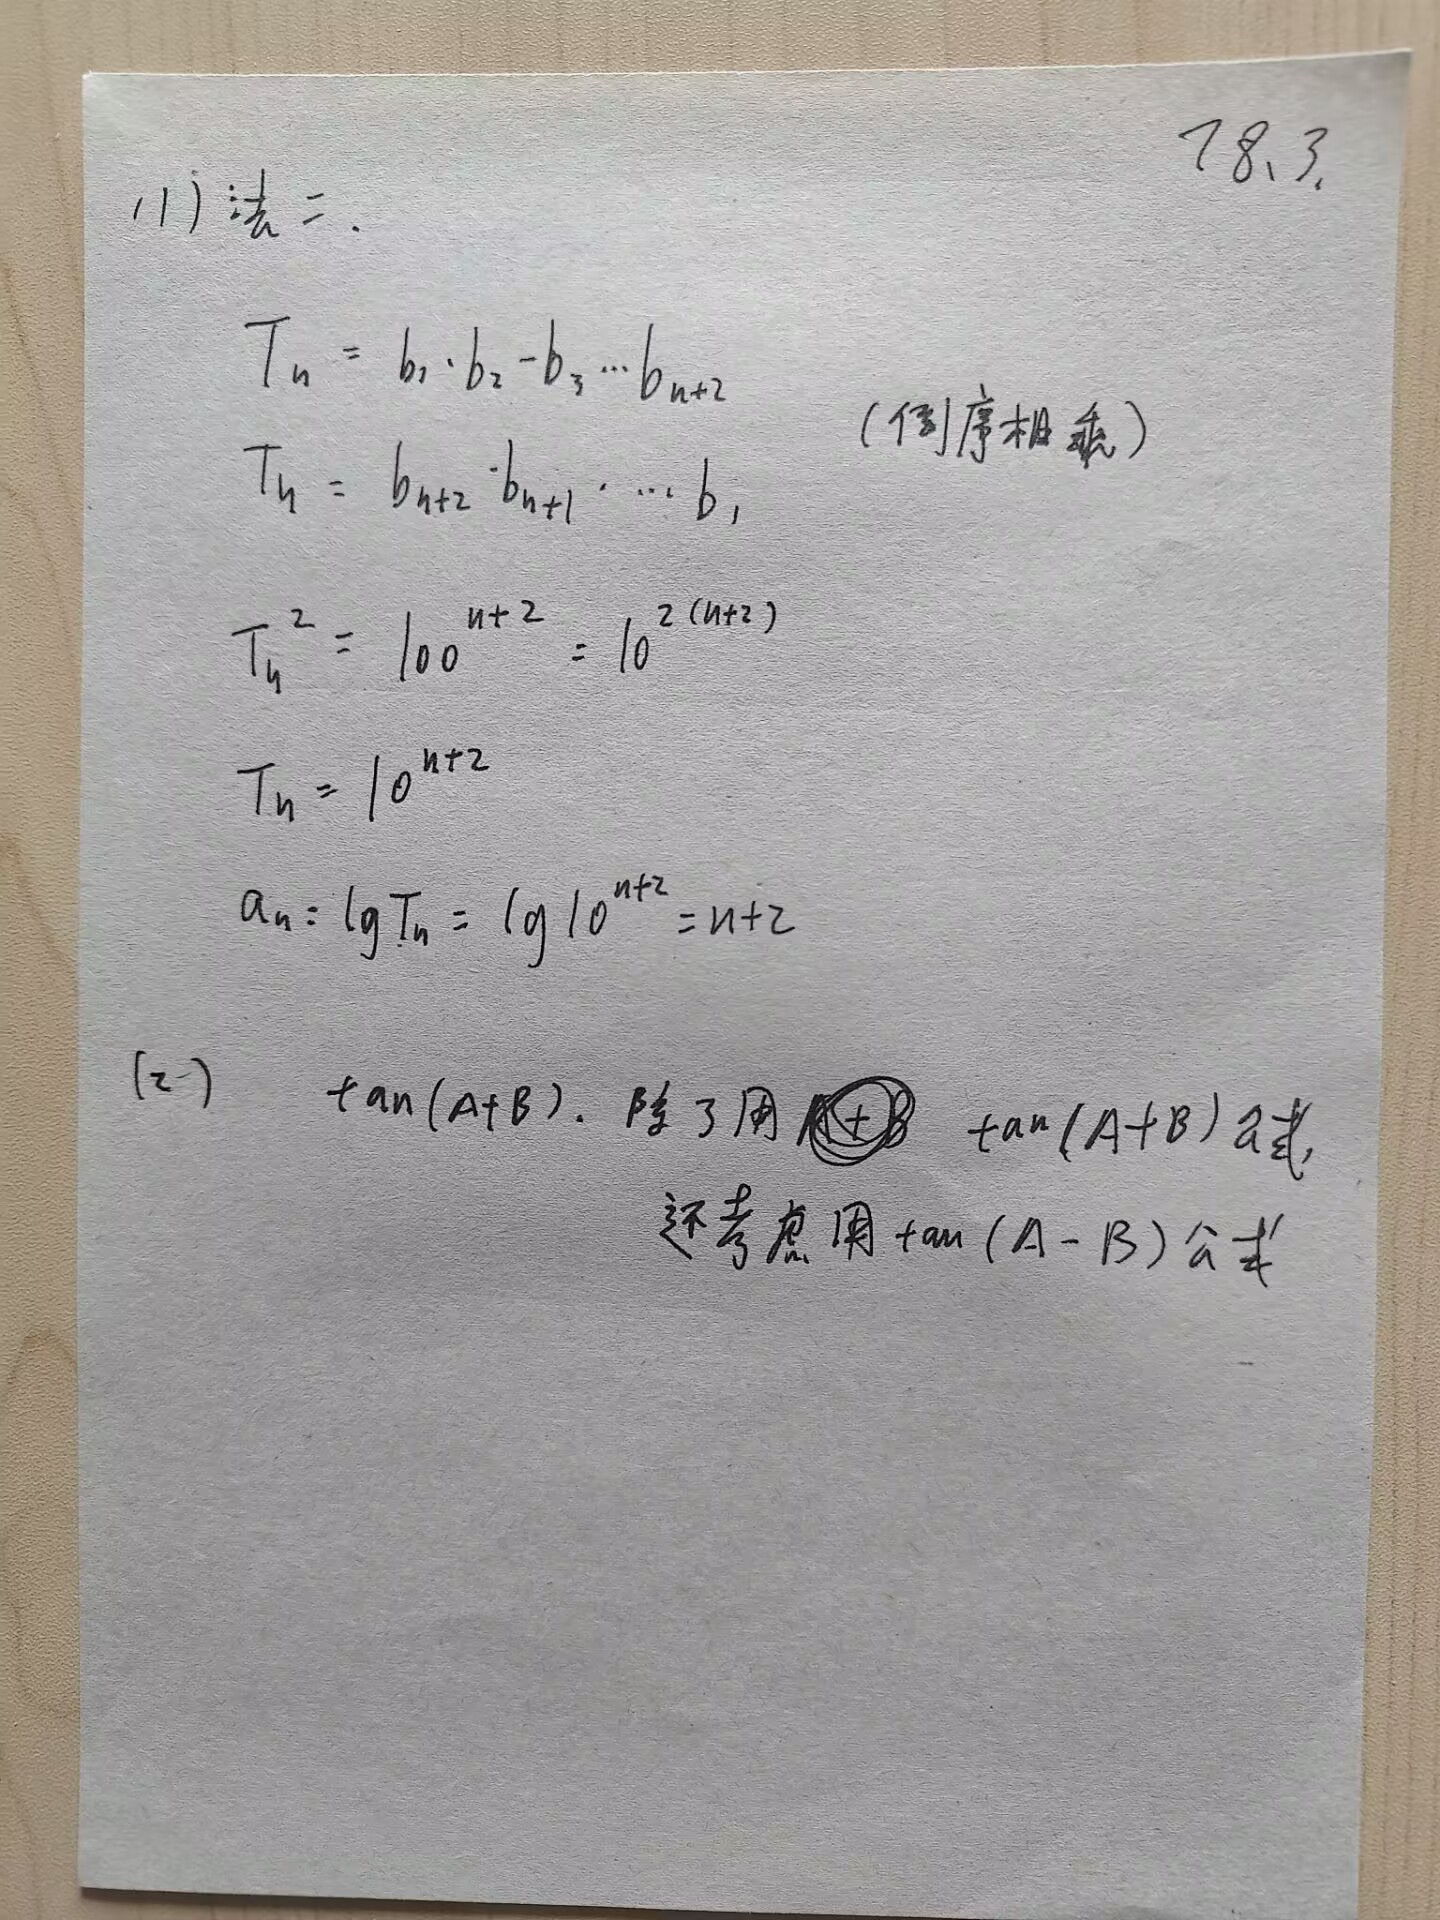 78、3.
(1) 法二.
Tn = b₁·b₂-b₃…bn+2
(倒序相乘)
Tn = bn+2·bn+1·…b₁
Tn² = 100^n+2 = 10^2(n+2)
Tn = 10^n+2
an = lgTn = lg10^n+2 = n+2
(2) tan(A+B). 除了用 tan(A+B)公式,
还考虑用tan(A-B)公式